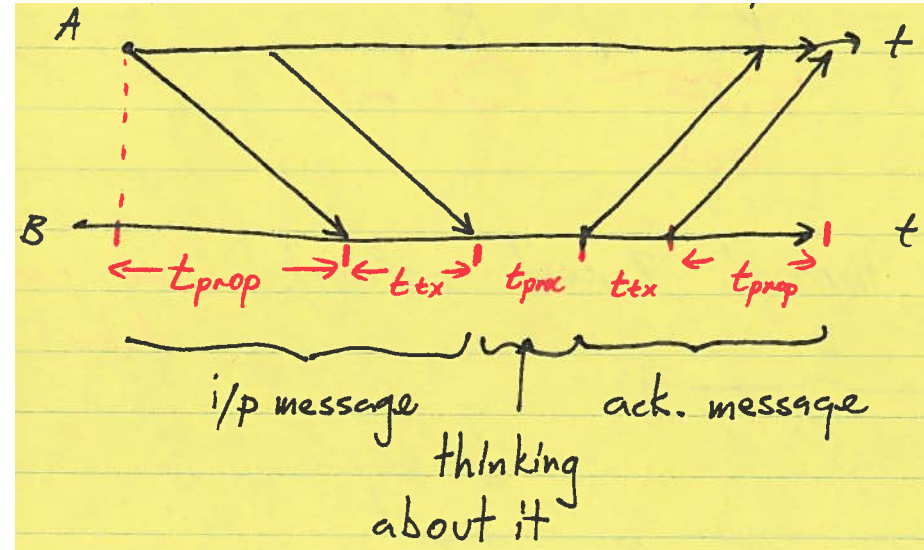 A t
B t
t prop t tx t proc t tx t prop
i/p message ack. message
thinking
about it